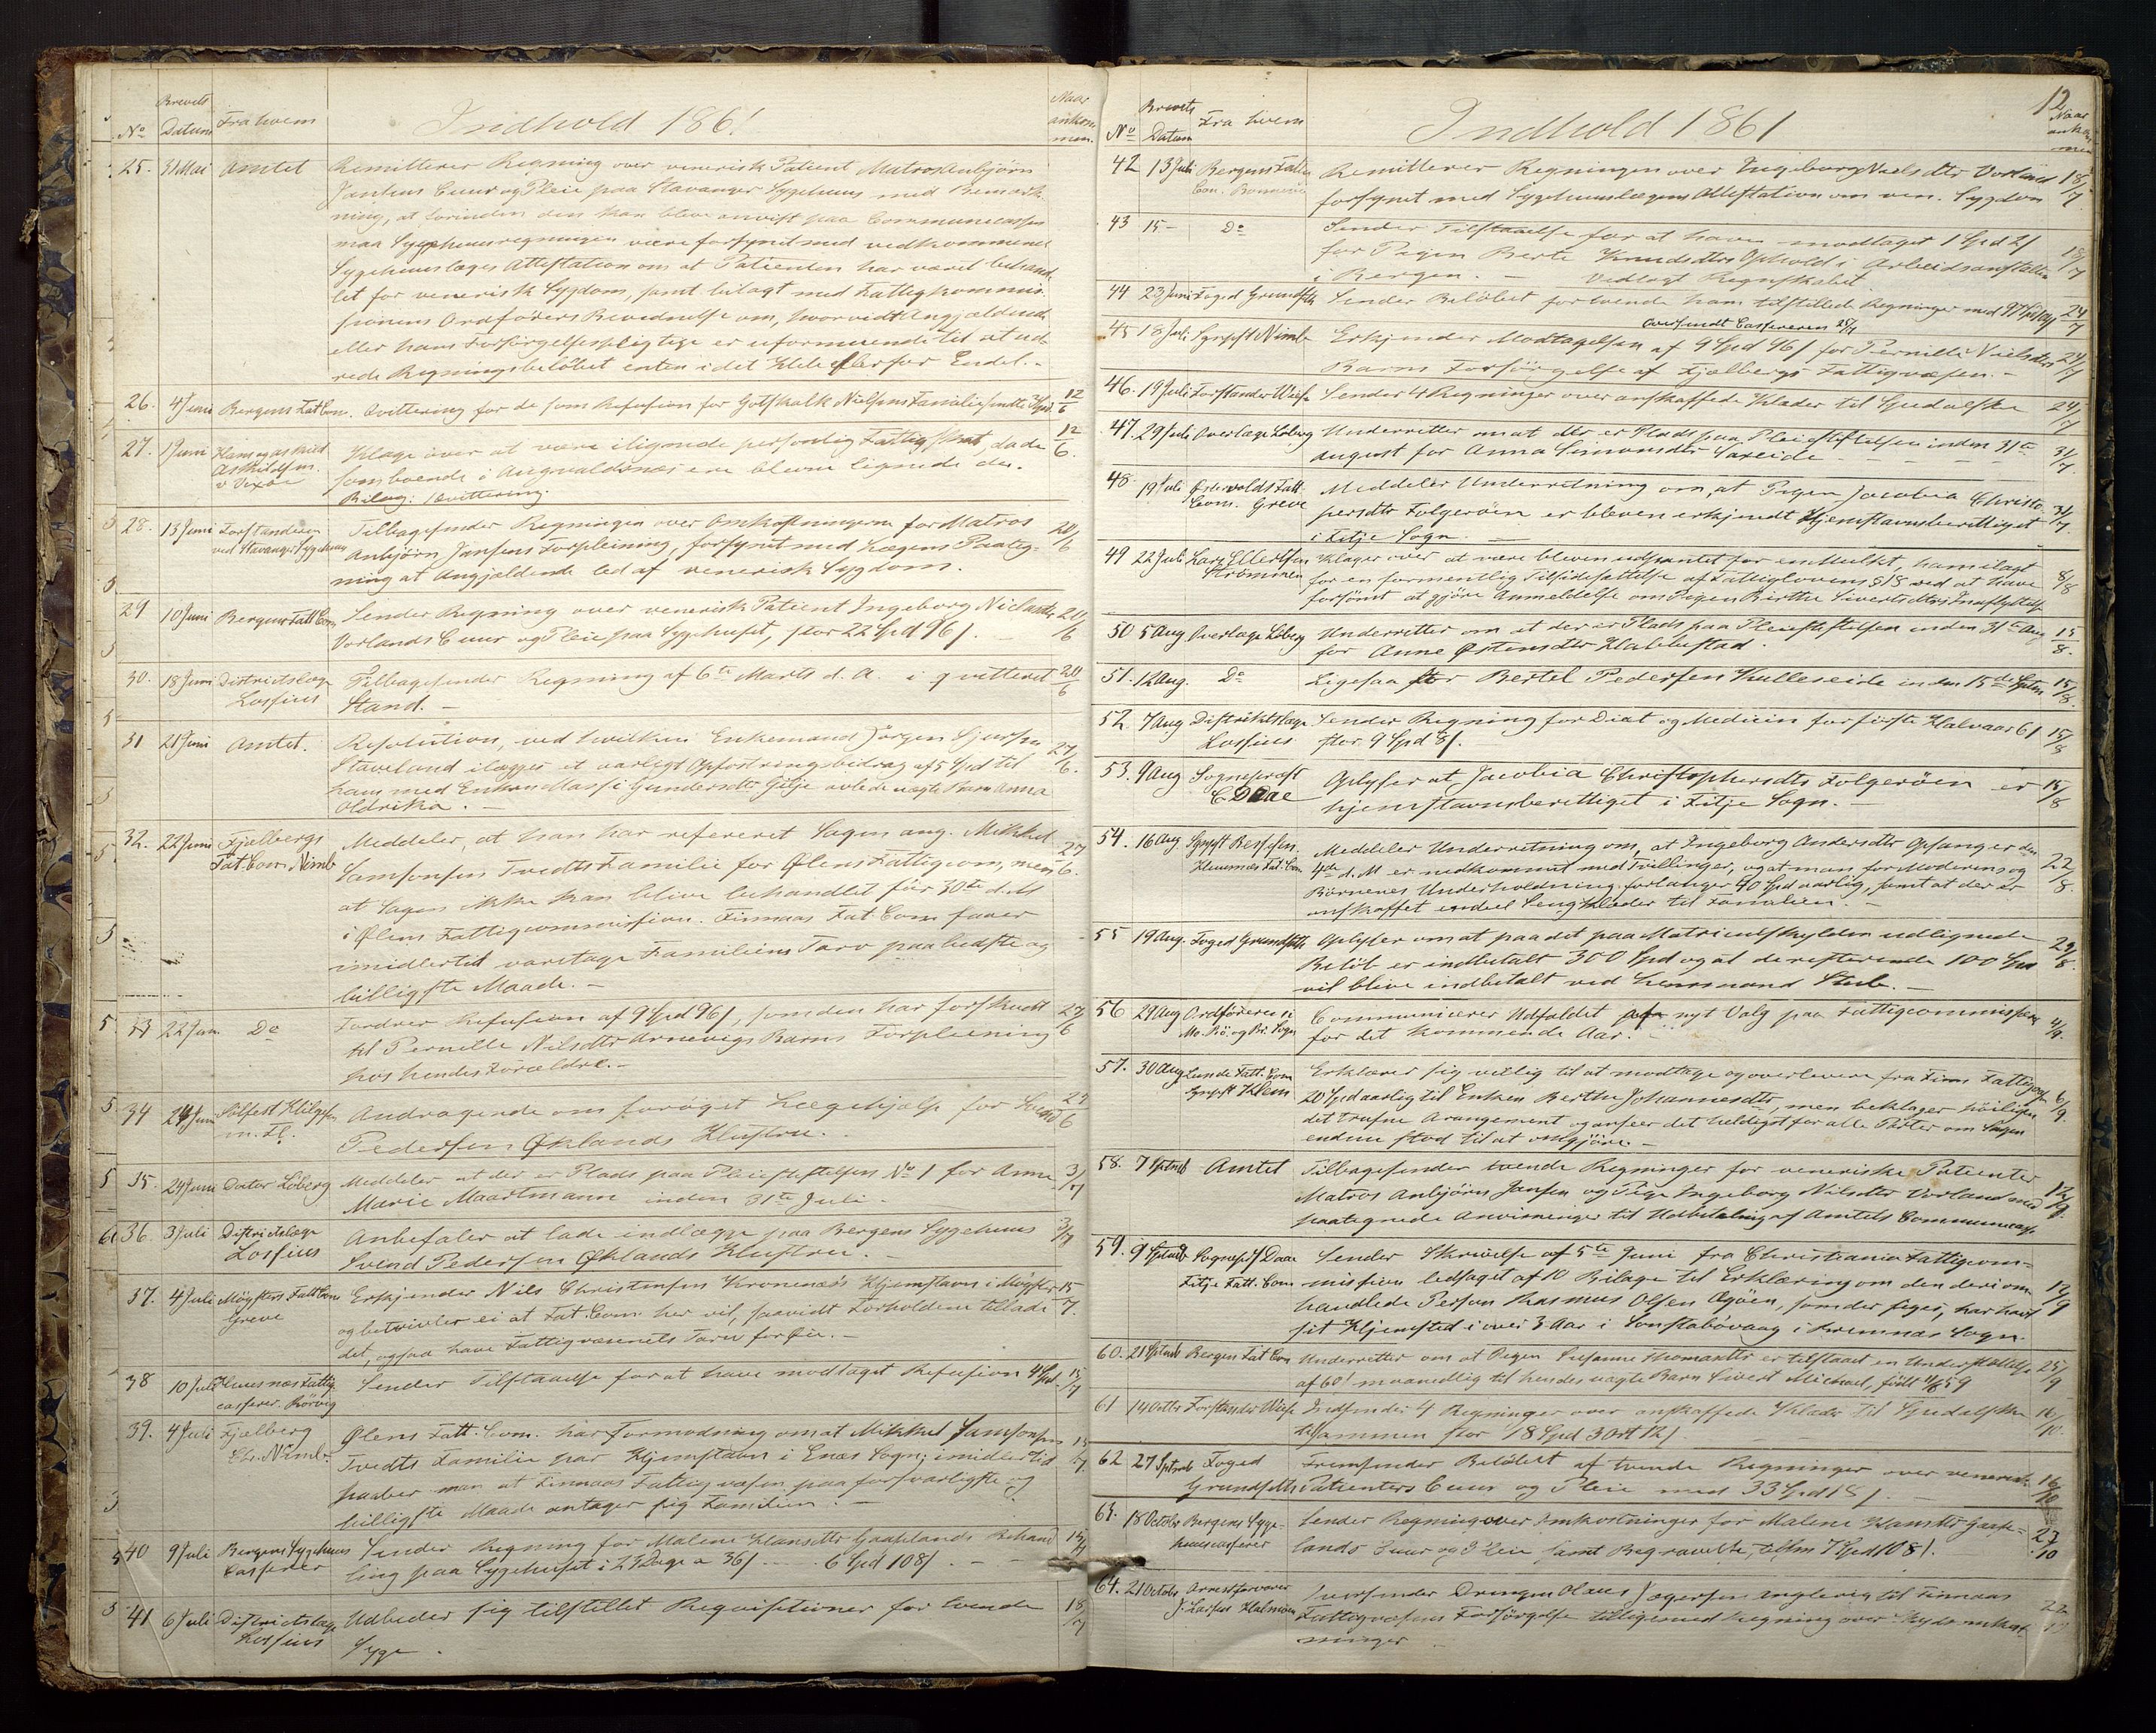 No Brevets Datum Fra hvem Indhold 1861 Naar ankommen.
25. 31 Mai Amtet Remitterer Regning over venerisk Patient Matros Anbjørn
Jansens Cuur og Pleie paa Stavanger Sygehuus med Bemærk-
ning, at forinden den kan blive anvist paa Communecassen
maa Sygehuusregningen være forsynet med vedkommende
Sygehuuslæges Attestation om at Patienten har været behand-
let for venerisk Sygdom, samt bilagt med Fattigkommis-
sionens Ordførers Bevidnelse om, hvorvidt Angjældende
eller hans Forsørgelsespligtige er uformuende til at ud-
rede Regningsbeløbet enten i det Hele eller for Endel. -
26. 4 Juni Bergens Fat Com. Qvittering for de som Refusion for Gotskalk Nielsens Familie sendte Spd. 12/6
27. 1 Juni Hans og Askild Klage over at være ilignede personlig Fattigskat, da de 12/6.
Askildsen
v Vixøe som boende i Augvaldsnæs ere blevne lignede der.
Bilag: 1 Qvittering.
28. 13 Juni Forstanderen Tilbagesender Regningen over Omkostningerne for Matros 20/6
ved Stavanger Sygehuus Anbjørn Jansens Forpleining, forsynet med Lægens Paateg-
ning at Angjældende led af venerisk Sygdom.
29 10 Juni Bergens Fatt Com Sender Regning over venerisk Patient Ingeborg Nielsdtr 20/6
Vorlands Cuur og Pleie paa Sygehuset, stor 22 Spd 96 /. -
30. 18 Juni Districtslæge Tilbagesender Regning af 6te Marts d. A. i qvitteret 20/6
Lossius Stand. -
31 21 Juni Amtet. Resolution, ved hvilken Enkemand Jørgen Sjursen 27/6.
Staveland ilægges et aarligt Opfostringsbidrag af 5 Spd til
ham med Enken Massi Gundersdtr Gilje avlede uægte Barn Anna
Oldrika. -
32. 22 Juni Fjælbergs Meddeler, at han har refereret Sagen ang. Mikkel 27/6.
Fat. Com. Nimb Samsonsen Tvedts Familie for Ølens Fattigcom, men
at Sagen ikke kan blive behandlet før 30te d. M
i Ølens Fattigcommission. Finnaas Fat. Com faaer
imidlertid varetage Familiens Tarv paa bedste og
billigste Maade. -
33 22 Juni Do Fordrer Refusion af 9 Spd 96 /, som den har forskudt 27/6
til Pernille Nilsdtr Arnevigs Barns Forpleining
hos hendes Forældre. -
34 24 Juni Andragende om forøget Lægehjælp for Svend 29/6
m. Fl. Pedersen Øklands Hustru.
35. 29 Juni Doctor Löberg Meddeler at der er Plads paa Pleiestiftelsen No 1 for Anne 3/7
Marie Maartmann inden 31te Juli -
36. 3 Juli Districtslæge Anbefaler at lade indlægge paa Bergens Sygehuus 3/7
Lossius Svend Pedersen Øklands Hustru. -
37. 4 Juli Møgsters Fatt Com Erkjender Nils Christensen Kroneneös Hjemstavn i Møgster 15/7.
Greve og betvivler ei at Fat. Com. her vil, saavidt Forholdene tillade
det, ogsaa have Fattigvæsenets Tarv for Øie. -
38 10 Juli Sveens Fattig- Sender Tilstaaelse for at have modtaget Refusion 4 Spd 15/7
casserer Rörvig
39. 4 Juli Fjælberg Ølens Fatt. Com. har Formodning om at Mikkel Samsonsen 15/7
Ch. Nimb. Tvedts Familie har Hjemstavn i Enæs Sogn; imidlertid
haaber man at Finnaas Fattigvæsen paa forsvarligste og
billigste Maade antager sig Familien. -
40 9 Juli Bergens Sygehuus Sender Regning for Malene Hansdtr Gaaselands Behand- 15/7
Casserer ling paa Sygehuset i 23 Dage a 36 / - - . 6 Spd 108 /. - -
41 6 Juli Districtslæge Udbeder sig tilstillet Requisitioner for tvende 18/7
Lossius Syge.
12
No Brevets Datum Fra hvem Indhold 1861 Naar ankommen
42 13 Juli Bergens Fattig Remitterer Regningen over Ingeborg Nielsdtr Vorland 18/7
Com. forsynet med Sygehuuslægens Attestation om ven. Sygdom
43 15 - Do Sender Tilstaaelse for at have modtaget 1 Spd 2 / 18/7
for Pigen Berte Knudsdtrs Ophold i Arbeidsanstalten
i Bergen. - Vedlagt Regnskabet
44 23 Juni Foged Grundseth Sender Beløbet for tvende ham tilstillede Regninger med 24/7
oversendt Cassereren 25/7
45 18 Juli Sgnpst Nimb Erkjender Modtagelsen af 9 Spd 96 / for Pernille Nielsdtrs 24/7
Barns Forsørgelse af Fjælbergs Fattigvæsen. -
46. 19 Juli Forstander Wiese Sender 4 Regninger over anskaffede Klæder til Spedalske 24/7
47. 29 Juli Overlæge Löberg Underretter om at der er Plads paa Pleiestiftelsen inden 31te 31/7.
August for Anna Simonsdtr Saxeide - - - -
48. 19 Juli Østervolds Fatt. Meddeler Underretning om, at Pigen Jacobia Christo- 31/7
Com. Greve persdtr Folgerøen er bleven erkjendt Hjemstavnsberettiget
i Fitje Sogn. -
49 22 Juli Lars Ellertsen Klager over at være bleven udpantet for en Mulkt, ham ilagt 8/8
Strömmen for en formentlig Tilsidesættelse af Fattiglovens § 18 ved at have
forsømt at gjøre Anmeldelse om Pigen Birthe Sivertsdtrs Indflyttelse
50 5 Aug Overlæge Löberg Underretter om at der er Plads paa Pleiestiftelsen inden 31te Aug 15/8.
for Anne Østensdtr Hallestad.
51. 12 Aug. Do Ligesaa for Bertel Pedersen Kulleseide inden 15de Sptm 15/8.
52. 7 Aug Distriktslæge Sender Regning for Diæt og Medicin for første Halvaar 61 15/8
Lossius stor 9 Spd 8 /. -
53. 9 Aug Sognepræst Oplyser at Jacobia Christophersdtr Folgerøen er 15/8
C Daae hjemstavnsberettiget i Fitje Sogn. -
54. 16 Aug. Sgnpst Meddeler Underretning om, at Ingeborg Andersdtr Opsanger den 22/8.
Fat. Com 4de d. M er nedkommet med Tvillinger, og at man for Moderens og
Børnenes Underholdning forlanger 40 Spd aarlig, samt at der er
anskaffet endeel Sengklæder til Familien. -
55 19 Aug. Foged Grundseth Oplyser om at paa det paa Matriculskylden udlignede 29/8.
Beløb er indbetalt 300 Spd og at de resterende 100 Spd
vil blive indbetalt ved Lensmand Stub. -
56 29 Aug Ordføreren i Communicerer Udfaldet af nyt Valg paa Fattigcommission 4/9.
Mo. Bö. og Br. Sogn for det kommende Aar. -
57. 30 Aug Lunde Fatt. Com Erklærer sig villig til at modtage og overlevere fra Finns Fattigv 6/9.
Sgnpst Klem 20 Spd aarlig til Enken Berthe Johannesdtr, men beklager høiligen
det trufne Arangement og anseer det heldigst for alle Parter om Sagen
endnu stod til at omgjøre. -
58. 7 Sptmb Amtet Tilbagesender tvende Regninger for veneriske Patienter 12/9.
Matros Anbjørn Jansen og Pige Ingeborg Nilsdtr Vorland med
paategnede Anvisninger til Udbetaling af Amtets Communecasse
59. 9 Sptmb Sognepst Daae Sender Skrivelse af 5te Juni fra Christiania Fattigcom- 12/9
Fitje Fatt. Com mission ledsaget af 10 Bilage til Erklæring om den deri om-
handlede Person Rasmus Olsen Øgöen, som der siges, har havt
sit Hjemsted i over 3 Aar i Sønstabövaag i Bremnæs Sogn.
60. 21 Sptmb Bergens Fat Com Underretter om at Pigen Susanne Thomasdtr er tilstaaet en Understøttelse 25/9
af 60 / maanedlig til hendes uægte Barn Sivert Michael, født 11/8 59
61 14 Octbr Forstander Wiese Indsender 4 Regninger over anskaffede Klæder til Spedalske 16/10.
tilsammen stor 18 Spd 3 Ort 12 /. - - -
62 27 Sptmb Foged Fremsender Beløbet af tvende Regninger over veneriske 16/10
Grundseth Patienters Cuur og Pleie med 33 Spd 18 /. -
63. 18 October Bergens Syge- Sender Regning over Omkostninger for Malene Hansdtr Gaase- 23/10
huuscasserer lands Cuur og Pleie samt Begravelse, tilsm 7 Spd 108 /.
64. 21 Octobr Arrestforvarer Oversender Drengen Olaus Jægersen Anglevig til Finnaas
J. Larsen Halmøe Fattigvæsens Forsørgelse tilligemed Regning over Skydsomkost-
ninger -